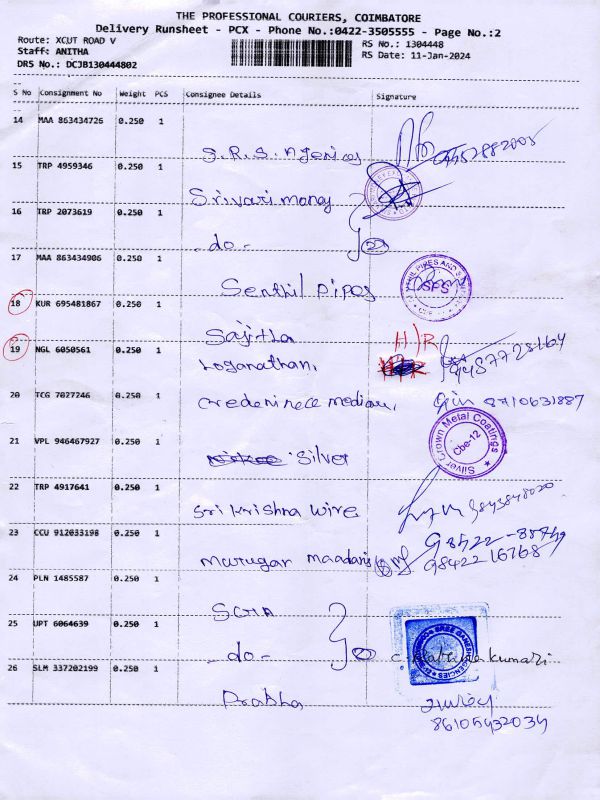 THE PROFESSIONAL COURIERS, COIMBATORE
Delivery Runsheet - PCX - Phone No.:0422-3505555 - Page No.:2
Route: XCUT ROAD V
RS No.: 1304448
Staff: ANITHA
RS Date: 11-Jan-2024
DRS No.: DCJB130444802
S No Consignment No Weight PCS Consignee Details Signature
14 MAA 863434726 0.250 1
S.R.S.
15 TRP 4959346 0.250 1
Srivari
16 TRP 2073619 0.250 1
- do -
17 MAA 863434906 0.250 1
Senthil pipes
SFS
18 KUR 695481867 0.250 1
Sajitha
H/R
19 NGL 6050561 0.250 1
Loganathan,
20 TCG 7027246 0.250 1
8710631887
21 VPL 946467927 0.250 1
Silver
Silver Crown Metal Coatings
Cbe-12
22 TRP 4917641 0.250 1
Sri Krishna wire
23 CCU 912033198 0.250 1
Murugan
9842216768
24 PLN 1485587 0.250 1
25 UPT 6064639 0.250 1
- do -
26 SLM 337202199 0.250 1
Prabha
86105432034